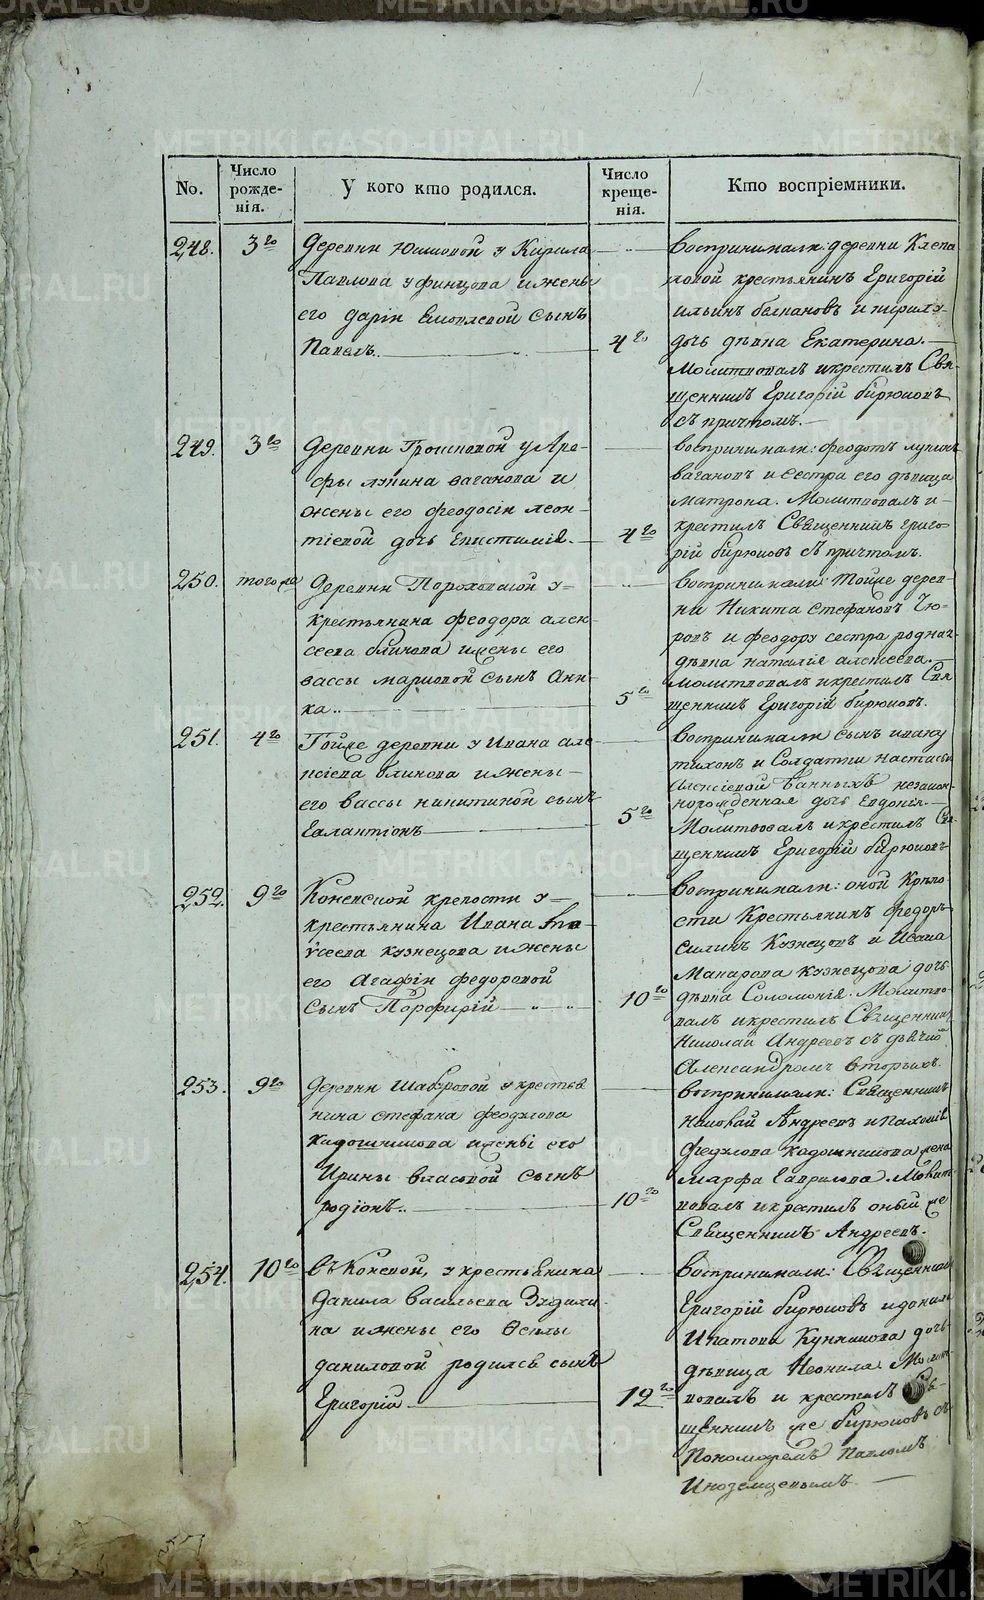 No.
Число рожде-нія.
У кого кто родился.
Число креще-нія.
Кто воспріемники.
248.
3го
Деревни Юшковой у Кирила
Павлова и жены
его Даріи сынъ
Павелъ.
4го
Воспринимали: деревни Клепа
ловой крестьянинъ Григорій
ильинъ и
дочь дѣвка Екатерина.
Молитвовалъ и крестилъ Свя-
щенникъ Григорій бирюковъ
съ причтомъ.
249.
3го
Деревни у Аре-
фы лупина ваганова и
жены его феодосіи леон-
тіевой дочь Епистимія.
4го
воспринимали: феодотъ лупинъ
вагановъ и сестра его дѣвица
матрона. Молитвовалъ и
крестилъ Священникъ григо-
рій бирюковъ съ причтомъ.
250.
того же
Деревни у
крестьянина феодора алек-
сеева блинова и жены его
вассы марковой сынъ Анни-
ка..
5го
Воспринимали: тойже дерев-
ни Никита Стефановъ Чю-
ровъ и феодору сестра родная
дѣвка наталія алексеева.
Молитвовалъ и крестилъ Свя
щенникъ Григорій бирюковъ.
251.
4го
Тойже деревни у Ивана але
ксіева блинова и жены
его вассы никитиной сынъ
Галактіонъ
5го
Воспринимали сынъ ивану
тихонъ и Солдатки настасьи
Алексіевой Банныхъ незакон-
норожденная дочь Евдокія.
Молитвовалъ и крестилъ Свя-
щенникъ Григорій бирюковъ
252.
9го
Коневской крепости у
крестьянина Ивана
кузнецова и жены
его Агафіи федоровой
Сынъ Порфирій
10го
Воспринимали: оной Крѣпо-
сти Крестьянинъ федоръ
силинъ Кузнецовъ и Исака
Макарова кузнецова дочь
дѣвка Соломонія. Молитво-
валъ и крестилъ Священникъ
Николай Андреевъ съ дьячкомъ
Александромъ вторыхъ.
253.
9го
Деревни Шабровой у крестья
нина стефана феодулова
кадошникова и жены его
Ирины власовой сынъ
родіонъ..
10го
Воспринимали: Священникъ
николай Андреевъ и пахомія
федулова кадошникова жена
марфа Гаврилова. Молит-
вовалъ и крестилъ оный же
Священникъ Андреевъ.
254.
10го
въ Коневой, у крестьянина
Данила васильева
на и жены его Феклы
даниловой родился сынъ
Григорій
12го
Воспринимали: Священникъ
Григорій бирюковъ и данила
Ипатова дочь
дѣвица Неонила. Молит-
вовалъ и крестилъ Свя-
щенникъ же бирюковъ съ
Пономаремъ Павломъ
Иноземцевымъ
METRIKI.GASO-URAL.RU